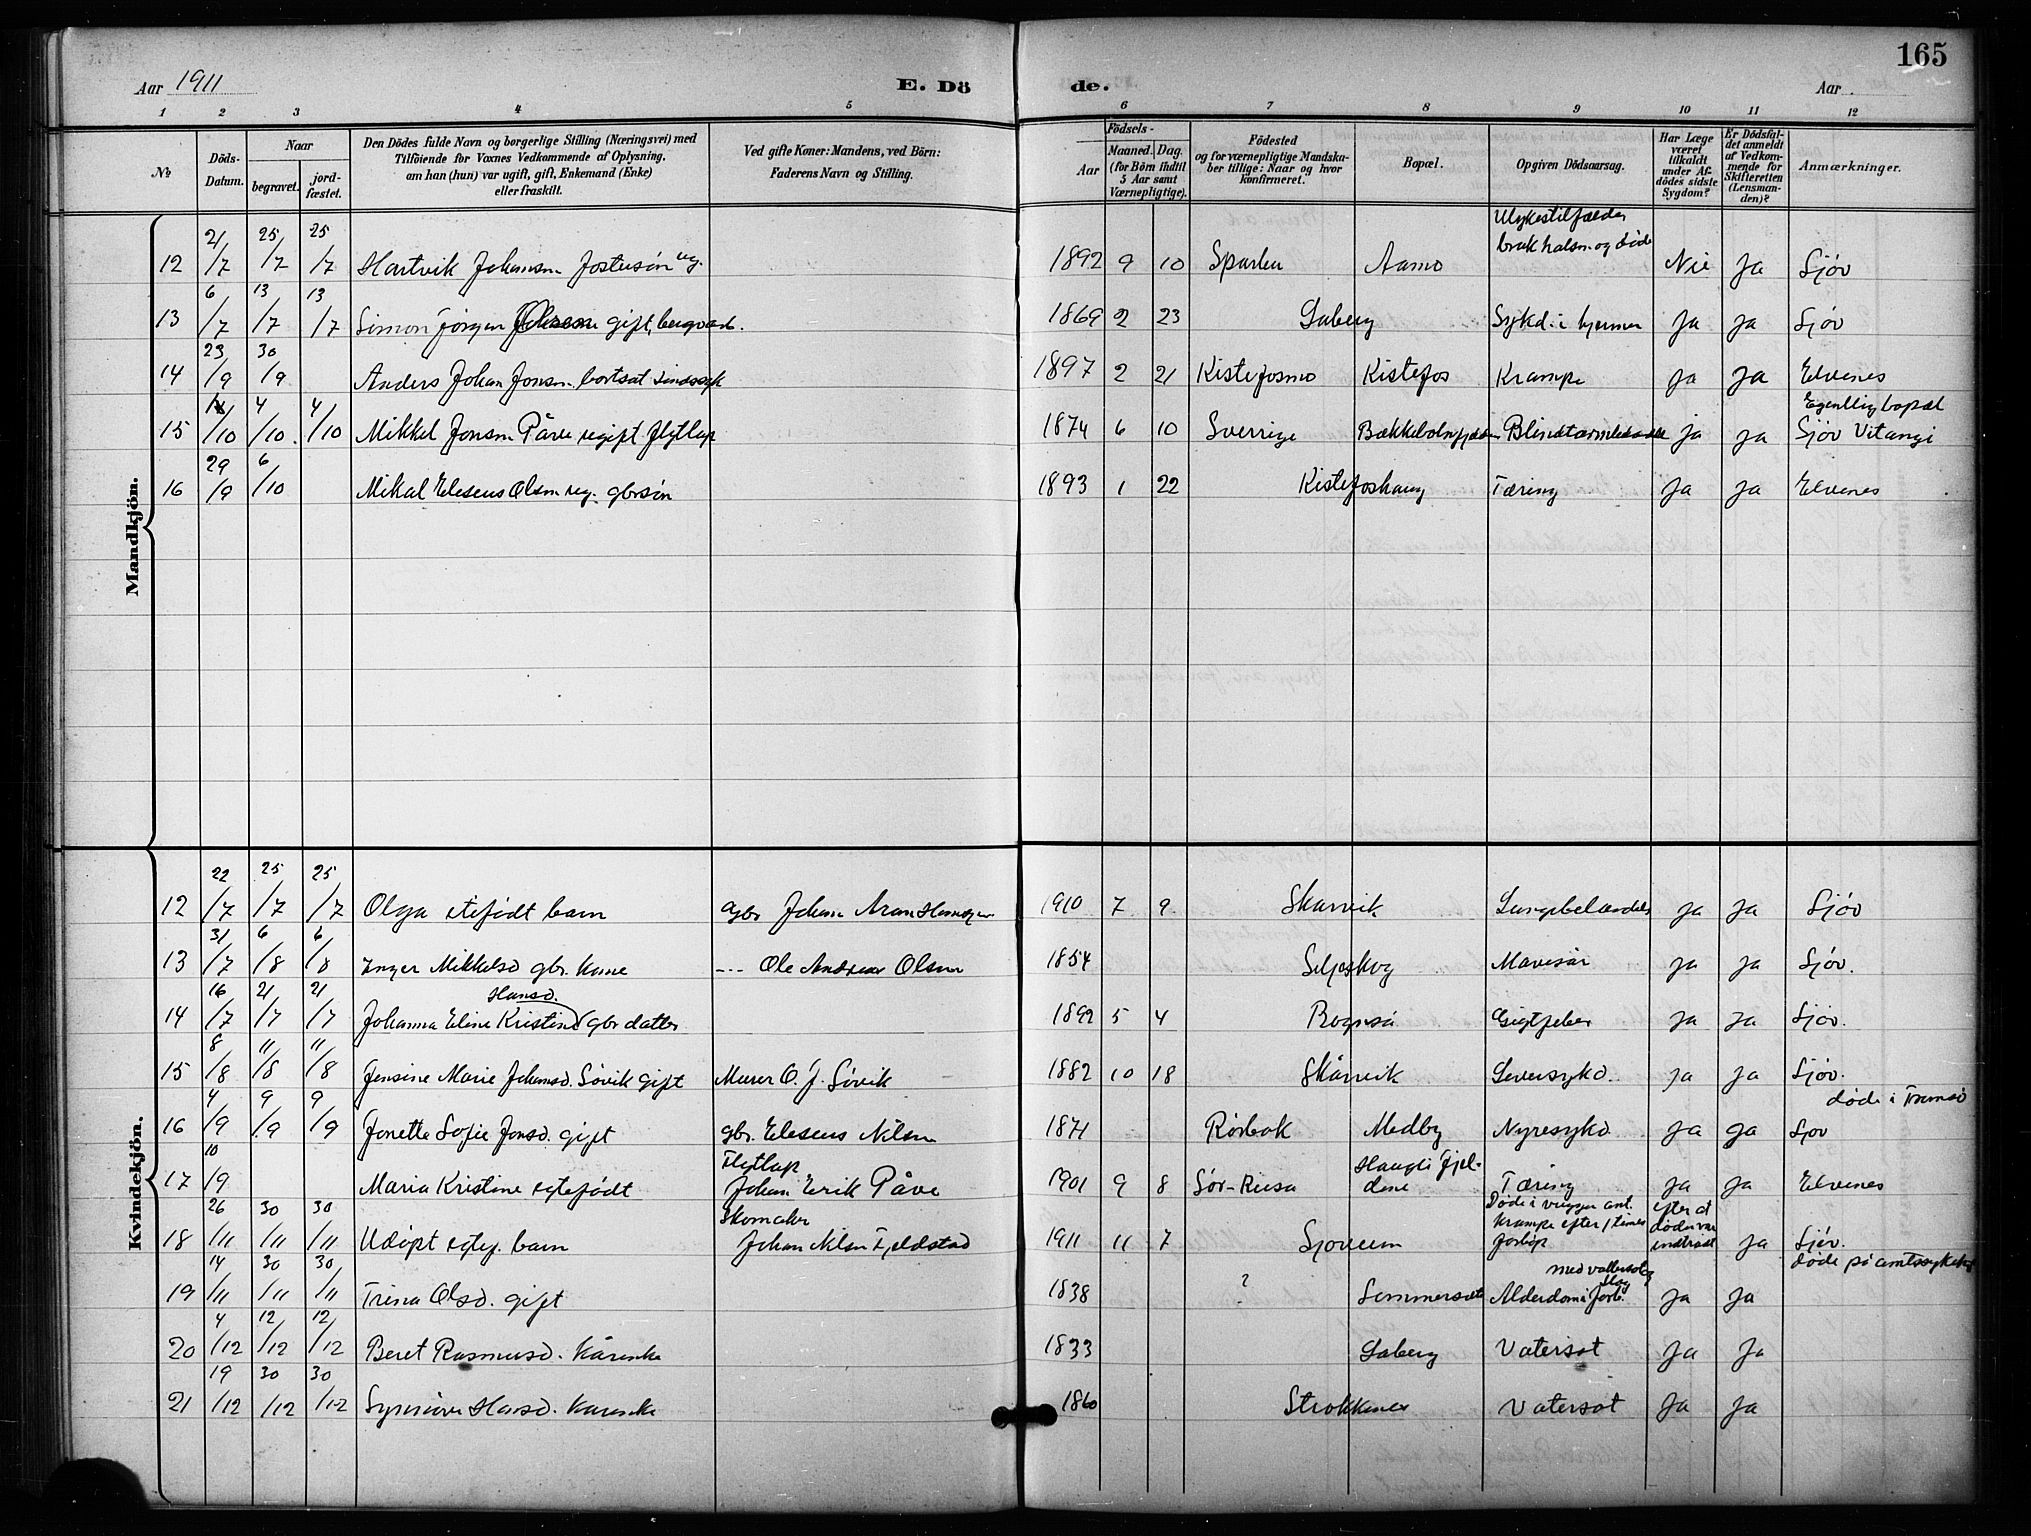 165
Aar 1911
E. Dö
de.
Aar
1 2 3 4 5 6 7 8 9 10 11 12
№
Döds-Datum.
Naar
begravet.
jord-fæstet.
Den Dödes fulde Navn og borgerlige Stilling (Næringsvei) med
Tilföiende for Voxnes Vedkommende af Oplysning,
om han (hun) var ugift, gift, Enkemand (Enke)
eller fraskilt.
Ved gifte Koner: Mandens, ved Börn:
Faderens Navn og Stilling.
Födsels-
Aar
Maaned. Dag.
(for Börn indtil
5 Aar samt
Værnepligtige).
Födested
og for værnepligtige Mandska-
ber tillige: Naar og hvor
konfirmeret.
Bopæl.
Opgiven Dödsaarsag.
Har Læge
været
tilkaldt
under Af-
dödes sidste
Sygdom?
Er Dödsfal-
det anmeldt
af Vedkom-
mende for
Skifteretten
(Lensman-
den)?
Anmærkninger.
Mandkjön.
12 21/7 25/7 25/7 Hartvik Johansn. Jostusøn ug. 1892 9 10 Sparlen Aamo Ulykestilfælde brak halsn. og døde Nei Ja Sjøv
13 6/7 13/7 13/7 Simon Jørgen gift, 1869 2 23 Laberg Sykd. i hjernen Ja Ja Sjøv
14 23/9 30/9 Anders Johan Jonsn. bortsat sindssyk 1897 2 21 Kistefosmo Kistefos Krampe Ja Ja Elvenes
15 /10 4/10 4/10 Mikkel Jonsn. Påve ugift flytlap 1874 6 10 Sverrige ja ja Egentlig bopæl Sjøv Vitangi
16 29/9 6/10 Mikal Eleseus Olsn. ug. gbrsøn 1893 1 22 Kistefoshaug Tæring Ja Ja Elvenes
Kvindekjön.
12 22/7 25/7 25/7 Olga barn gbr Johan Aron 1910 7 9 Skarvik ja Ja Sjøv
13 31/7 6/8 6/8 Inger Mikkelsd. gbr. kone --- Ole Andreas Olsen 1854 Seljeskog Mavesår Ja Ja Sjøv.
14 16/7 21/7 21/7 Johanna Eline Kristine Hansd. gbr datter 1892 5 4 Rognså Gigtfeber Ja Ja Sjøv.
15 8/8 11/8 11/8 Jensine Marie Johansd. Søvik gift Murer O. J. Søvik 1882 10 18 Skårvik Leversykd. Ja Ja Sjøv.
16 4/9 9/9 9/9 Jonette Sofie Jonsd. gift gbr. Eleseus Nilsn 1871 Rørbak Medby Nyresykd Ja Ja døde i Tromsø Sjøv
17 10/9 Maria Kristine egtefødt Flytlap Johan Eerik Påve 1901 9 8 Sør-Reisa Haugli fjeldene Tæring Ja Ja Elvenes
18 26/11 30/11 30/11 Udøpt egtef. barn Skomaker Johan Nilsn Fjeldstad 1911 11 7 Sjøveien Døde i vuggen ant. krampe efter 1 times forløp efter at døden var indtrådt Ja Sjøv.
19 14/11 30/11 30/11 Trina Olsd. gift 1838 ? Sommerset Alderdom i forb. med vattersot og slag Ja Ja døde på amtssykehus
20 4/12 12/12 12/12 Beret Rasmusd. kårenke 1833 Laberg Vatersot Ja Ja
21 19/12 30/12 30/12 Synnøve Hansd. kårenke 1860 Strokkenes Vatersot Ja Ja